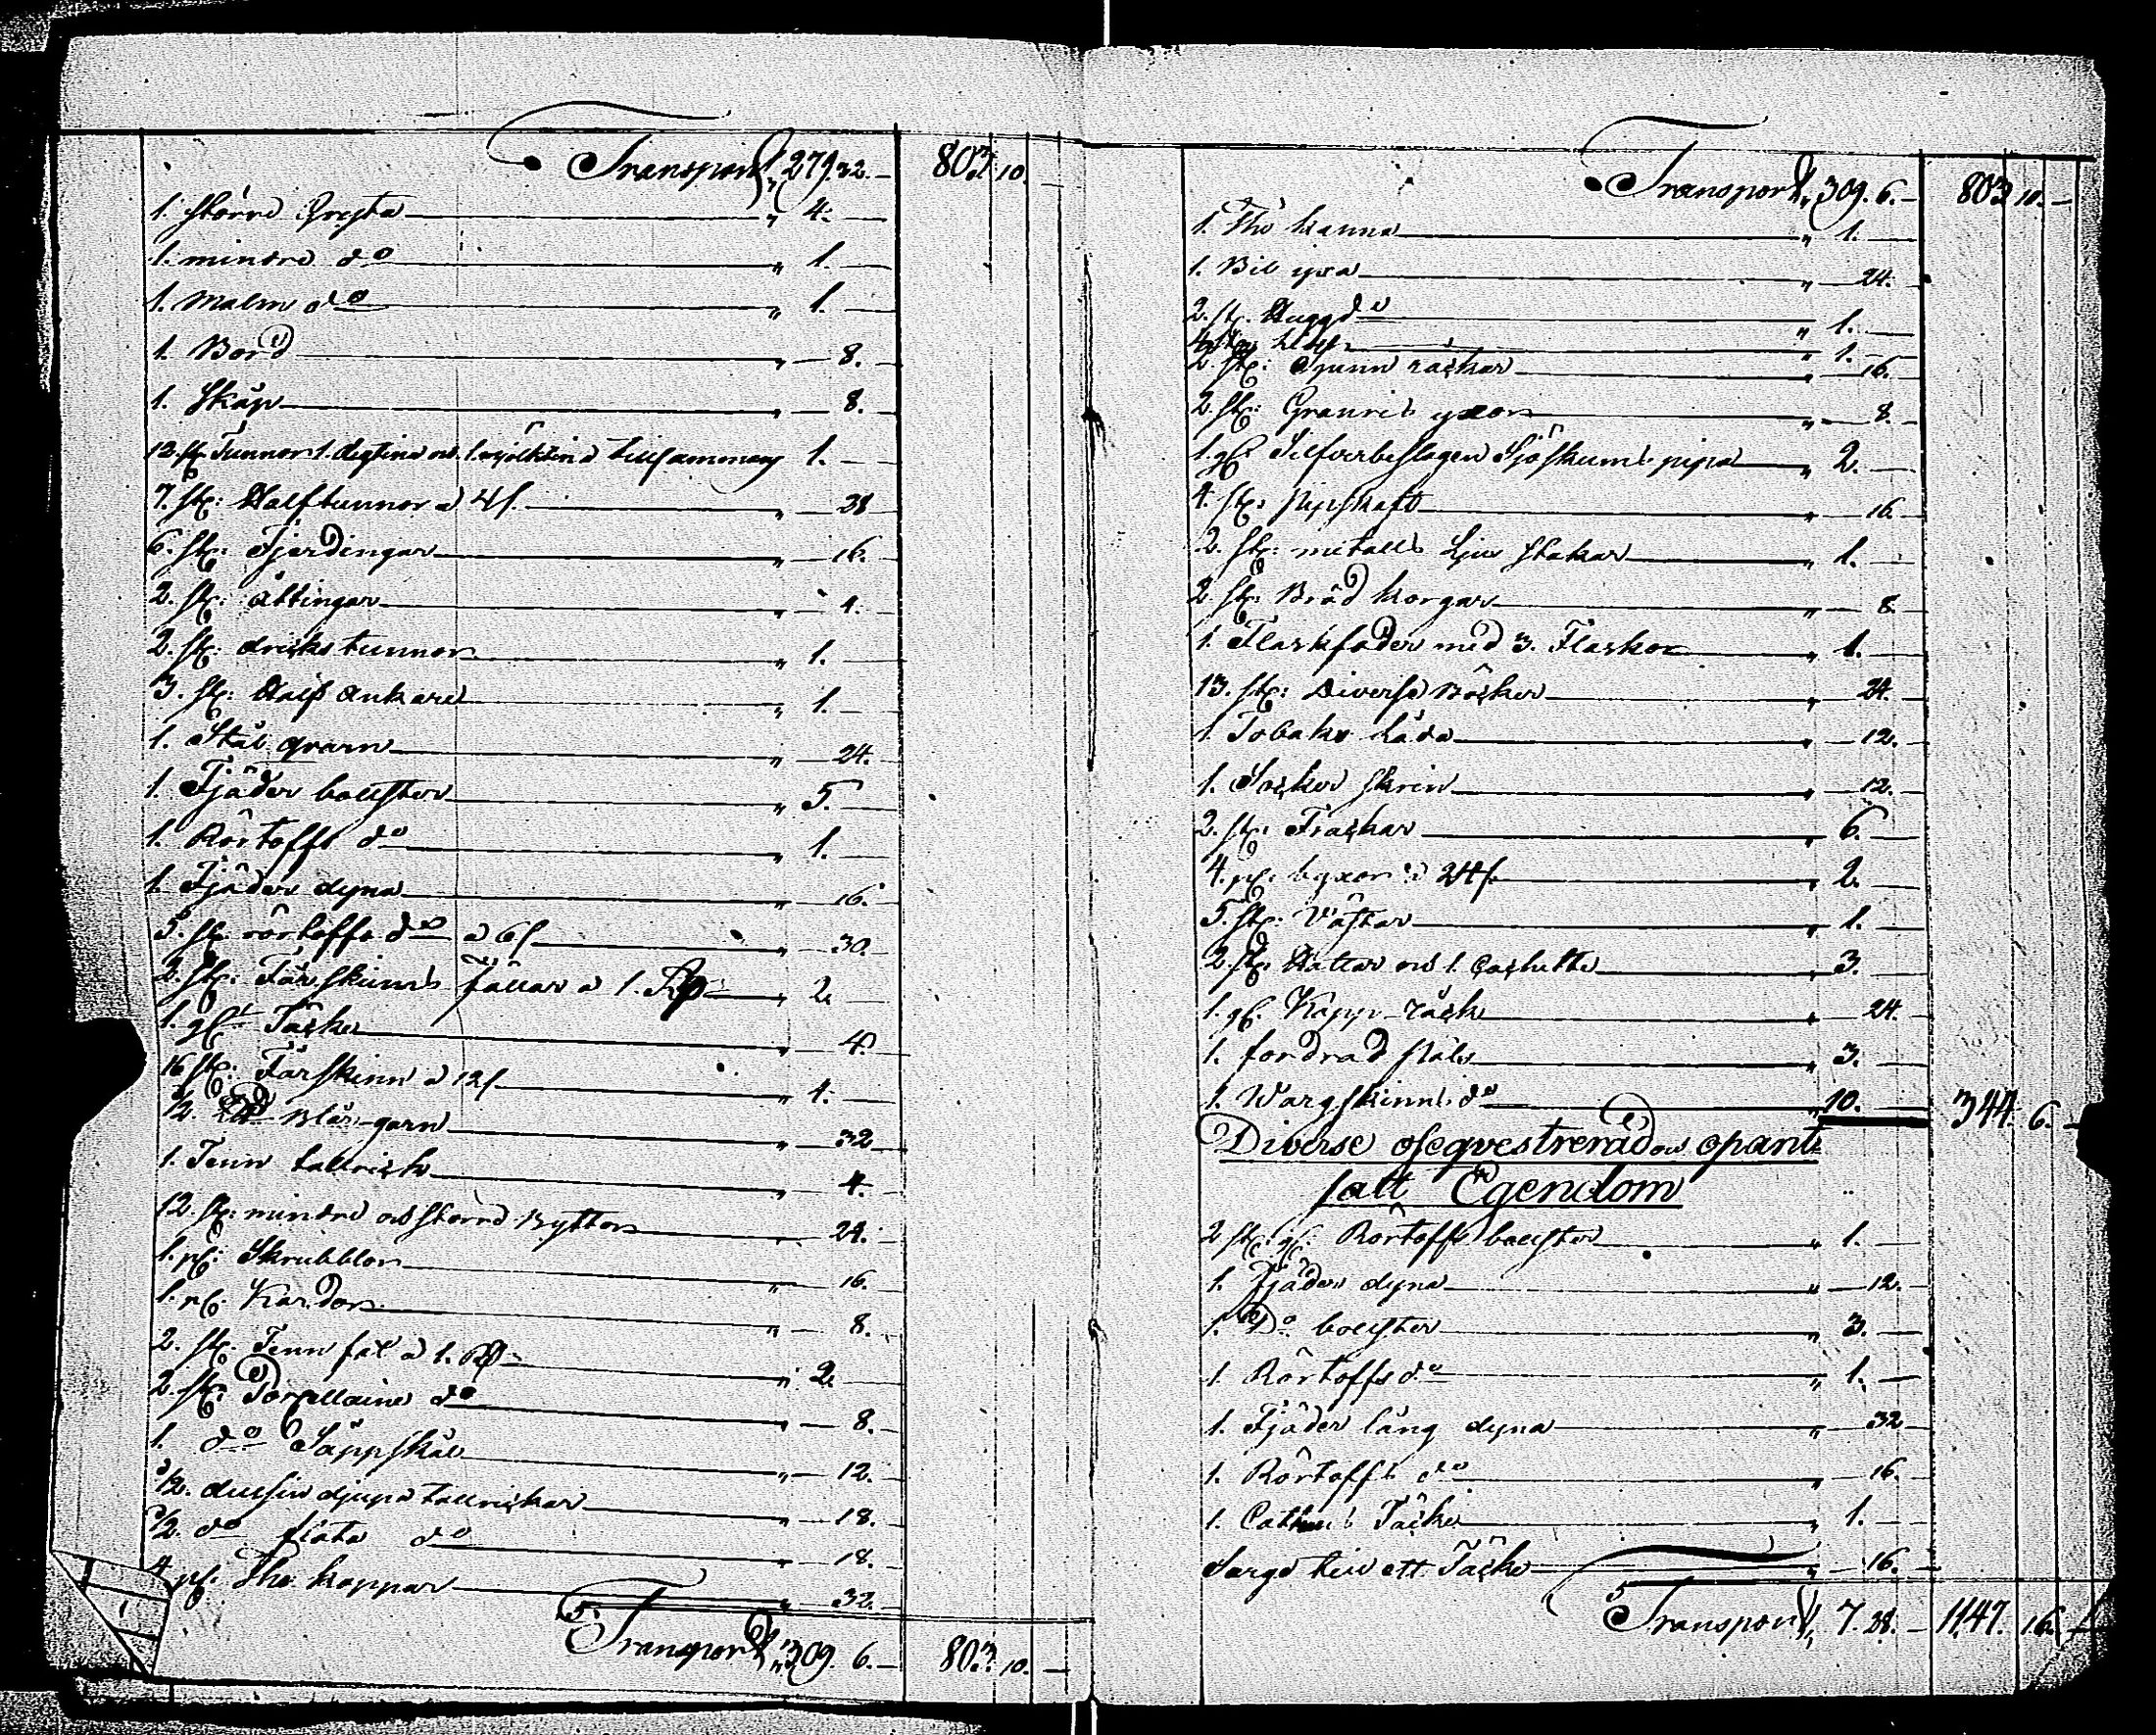 Transport „ 279. 32. — 803. 10. —
1. större Gryta „ 4. —
1. mindre do „ 1. —
1. Malm do „ 1. —
1. Bord „ — 8. —
1. Skåp „ — 8. —
12. st. Tunnor 1. degtina o. 1. tillsammans 1. —
7. st: Halftunnor a 4 s. „ — 28
6. st: Fjerdingar „ — 16. —
2. st: Åttingar „ — 4. —
2. st: dricks tunnor „ 1. —
3. st: Half ankare „ 1. —
1. Stål qvarn „ — 24. —
1. Fjäder bolster „ 5. —
1. Rörtoffs do „ 1. —
1. Fjäder dyna „ — 16. —
5. st. rörtoffs do a 6 s „ — 30. —
2. st: Fårskinns fällar a 1. Rd „ 2. —
1. gl: Täcke „ — 4. —
16 st: Fårskinn a 12 s „ 4. —
Blår-garn „ — 32
1. Tenn tallrick „ — 4. —
12. st: mindre och större Byttor „ — 24. —
1. p: Skrubblor „ — 16. —
1. p: Kardor „ — 8. —
2. st: Tenn fat a 1. Rd „ 2. —
2. st: Porcellaine do „ — 8. —
1. do Såppskål „ — 12. —
1/2. dussin djupa tallrickar „ — 18. —
1/2. do flata do „ — 18. —
4 p: The koppar „ — 32. —
Transport „ 309. 6. — 803. 10. —
Transport „ 309. 6. — 803 10. —
1. The kanna „ 1. —
1. Bil yxa „ — 24. —
2. st. Hugg do „ 1. —
„ 1. —
2. st: rackar „ — 16. —
2. st: Granris yxor „ — 8. —
1. gl. Silfverbeslagen Sjöskums pipa „ 2. —
4. st: pipskaft „ — 16
2. st: metalls Ljus stakar „ 1. —
2. st: Bröd korgar „ — 8
1. Flaskfoder med 3. Flaskor „ 1. —
13. st: Diverse Böcker „ — 24. —
1. Tobaks Låda „ — 12. —
1. Socker skrin „ — 12. —
2. st: Frackar „ 6. —
4. p: byxor a 24 s. „ 2. —
5. st: Västar „ 1. —
2. st. Hattar och 1. Caskette „ 3. —
1. gl. Kapp-råck „ — 24. —
1. fordrad päls „ 3. —
1. Wargskinns do „ 10. — 344. 6. —
Diverse oseqvestrerad och opant-
satt Egendom
2 st. gl: Rörtoffs bolster „ 1. —
1. Fjäder dyna „ — 12. —
1. Do bolster „ 3. —
1. Rörtoffs do „ 1. —
1. Fjäder lång dyna „ — 32
1. Rörtoffs do „ — 16. —
1. Cattuns Täcke „ 1. —
Sarge till ett Täcke „ — 16. —
Transport „ 7. 28. — 1147. 16. —